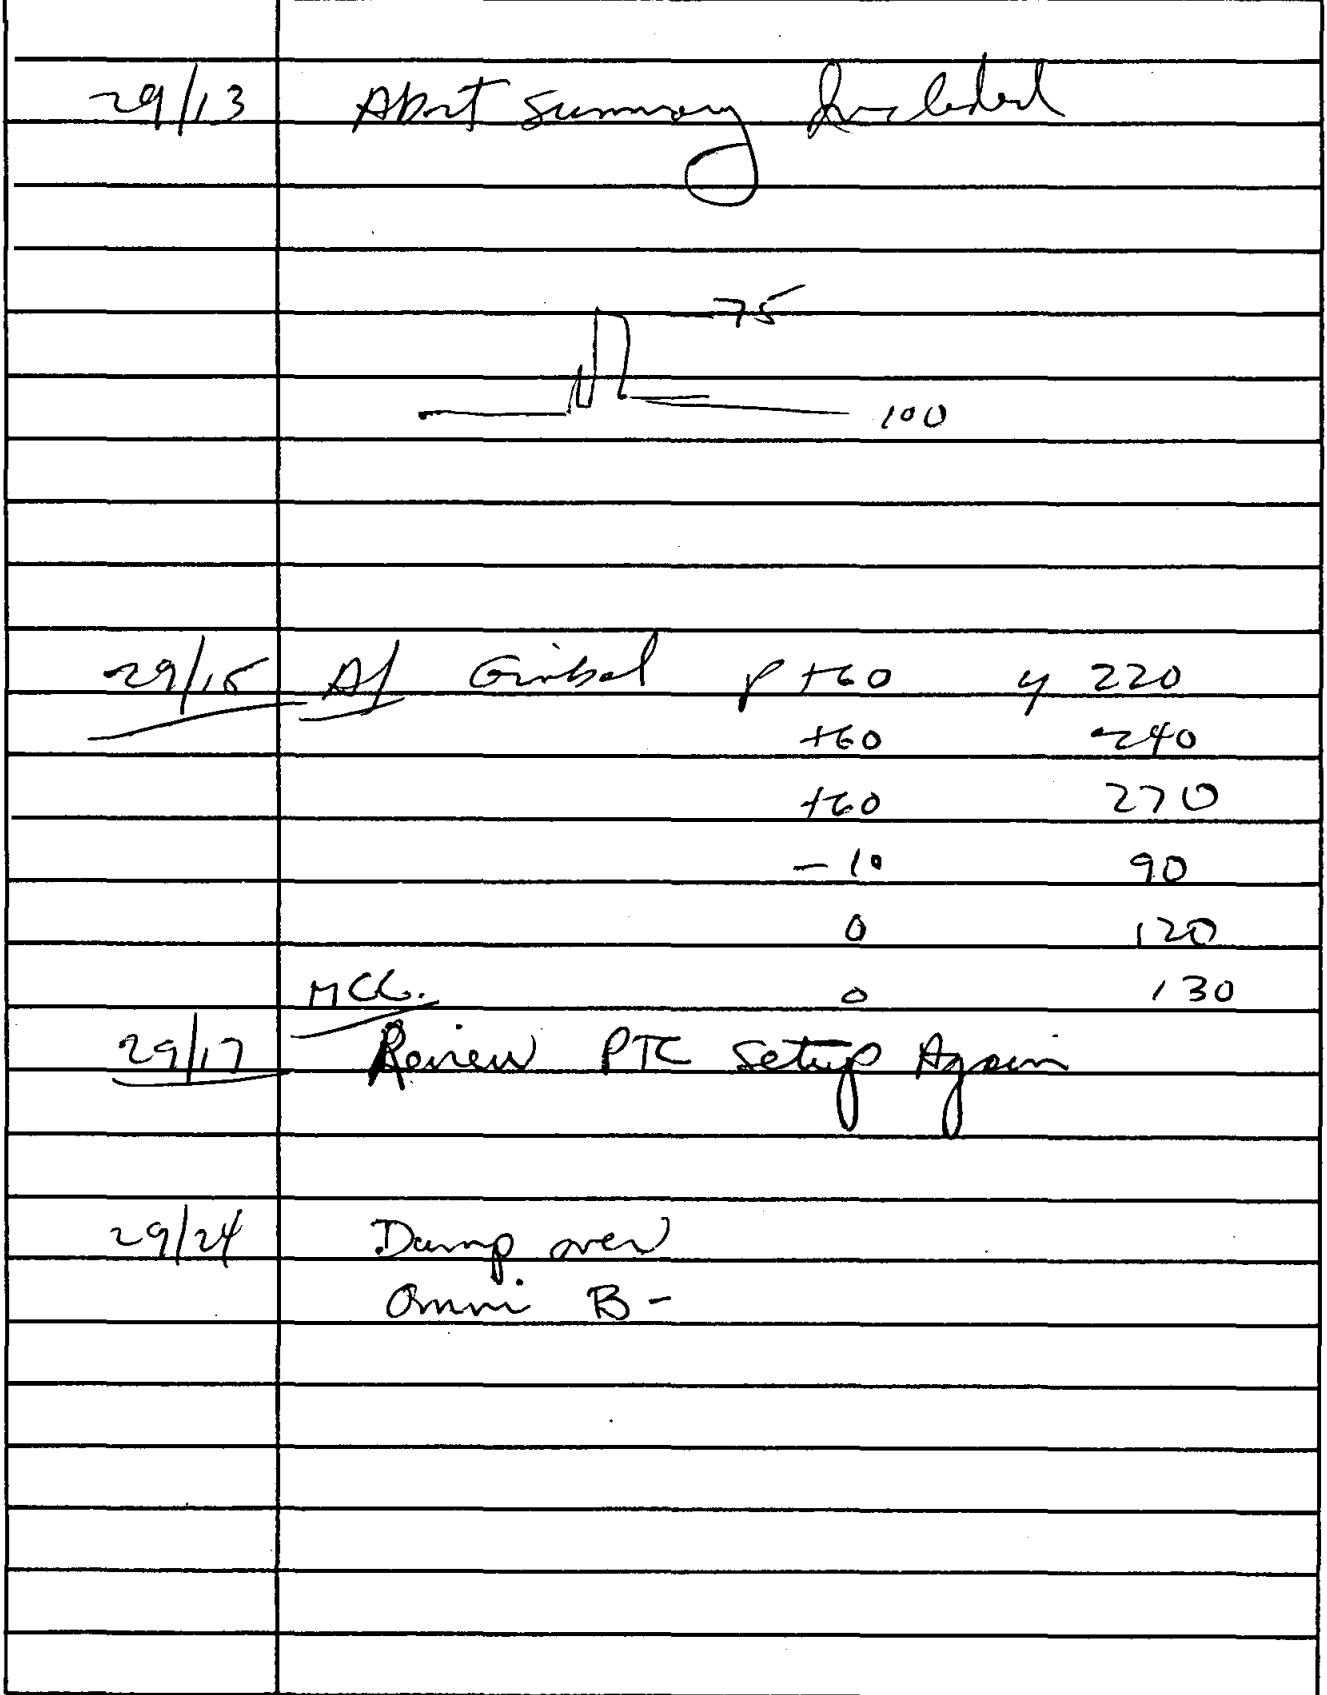 29/13 Abort Summary Included
75
100
29/15 A/ Gimbal P +60 y 220
+60 240
+60 270
-10 90
0 120
MCC. 0 130
29/17 Review PTC Setup Again
29/24 Dump over
Omni B -